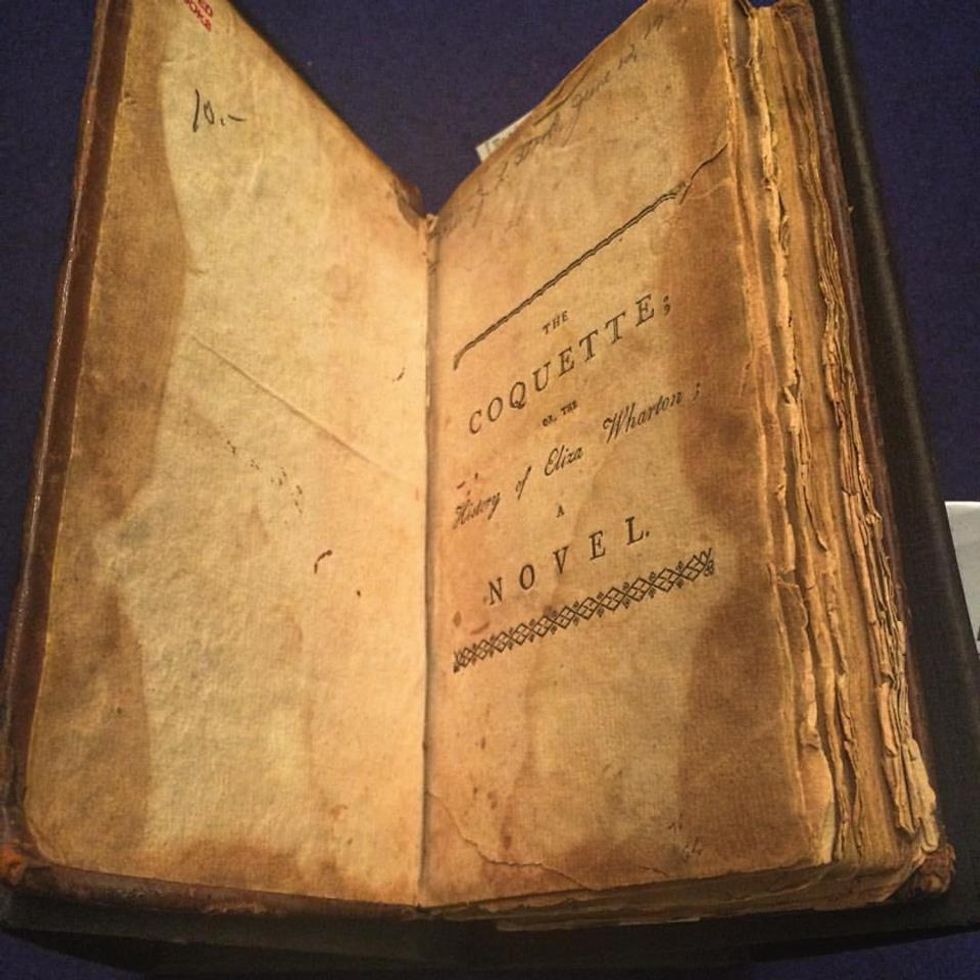 10.-
THE
COQUETTE;
OR, THE
History of Eliza Wharton;
A
NOVEL.